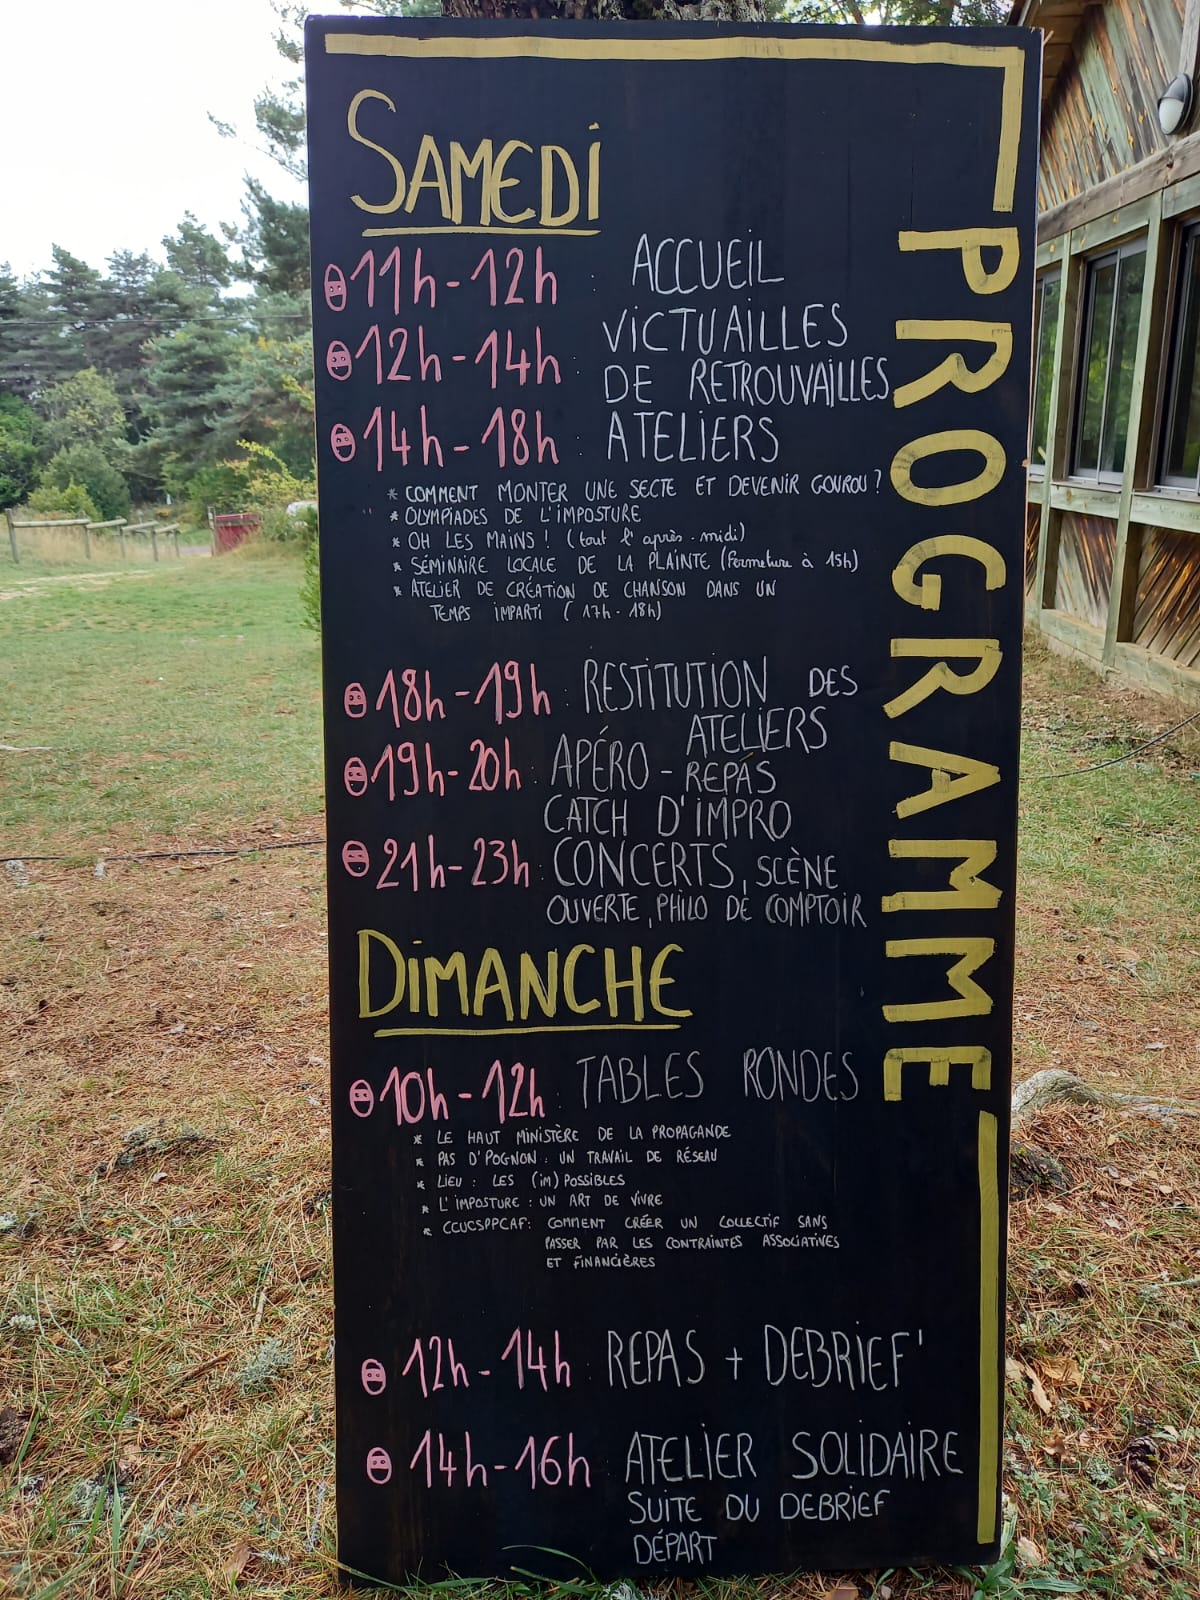 PROGRAMME
SAMEDI
11h-12h : ACCUEIL
12h-14h : VICTUAILLES
DE RETROUVAILLES
14h-18h : ATELIERS
* COMMENT MONTER UNE SECTE ET DEVENIR GOUROU ?
* OLYMPIADES DE L'IMPOSTURE
* OH LES MAINS ! (tout l'après-midi)
* SÉMINAIRE LOCALE DE LA PLAINTE (Fermeture à 15h)
* ATELIER DE CRÉATION DE CHANSON DANS UN
TEMPS IMPARTI (17h-18h)
18h-19h : RESTITUTION DES
ATELIERS
19h-20h : APÉRO - REPAS
CATCH D'IMPRO
21h-23h : CONCERTS, SCÈNE
OUVERTE, PHILO DE COMPTOIR
DIMANCHE
10h-12h : TABLES RONDES
* LE HAUT MINISTÈRE DE LA PROPAGANDE
* PAS D'POGNON : UN TRAVAIL DE RÉSEAU
* LIEU : LES (IM)POSSIBLES
* L'IMPOSTURE : UN ART DE VIVRE
* CCUCSPPCAF : COMMENT CRÉER UN COLLECTIF SANS
PASSER PAR LES CONTRAINTES ASSOCIATIVES
ET FINANCIÈRES
12h-14h : REPAS + DEBRIEF'
14h-16h : ATELIER SOLIDAIRE
SUITE DU DEBRIEF
DÉPART